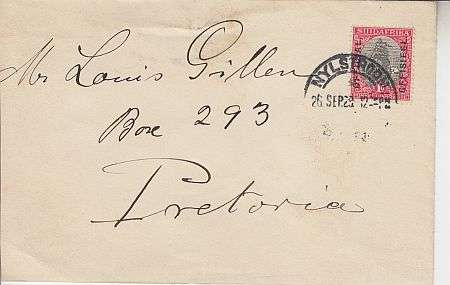 Mr Louis Gillen
Box 293
Pretoria
SUIDAFRIKA
OFFISIEEL
NYLSTROOM
26 SEP 29 12-PM